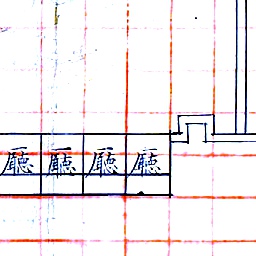 廳 廳 廳 廳